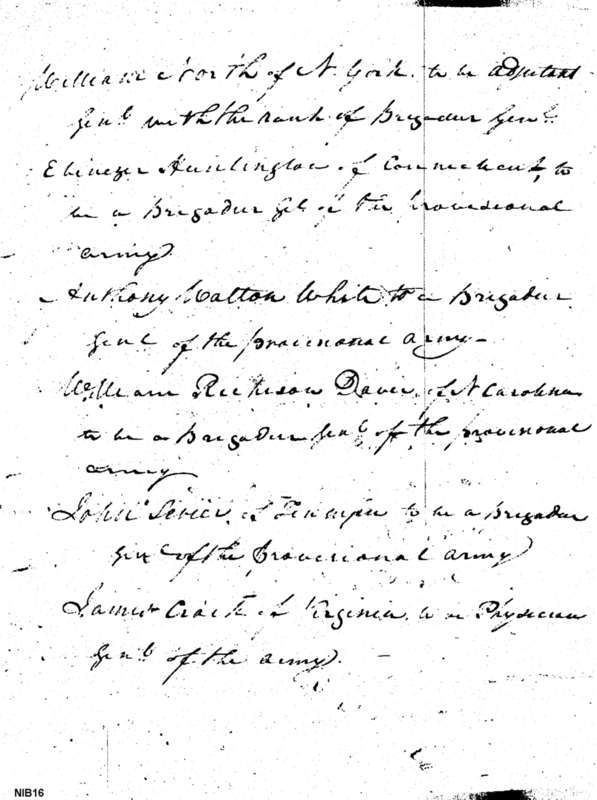 William North of N. York. to be adjutant
Genl. with the rank of Brigadier Genl.
Ebinezer Huntington of Connecticut, to
be a Brigadier Gel of the provisional
army.
Anthony Walton White to a Brigadier
Genl of the provisional army—
William Richison Davie of N Carolina
to be a Brigadier Genl of the provisional
army
John Sevier of to be a Brigadier
Genl of the provisional army
James Craik of Virginia to be Physician
Genl of the army.
NIB16